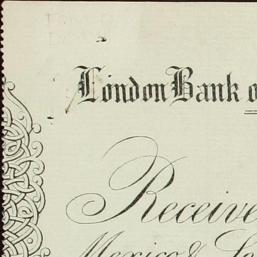 London Bank o
Receive
Mexico &